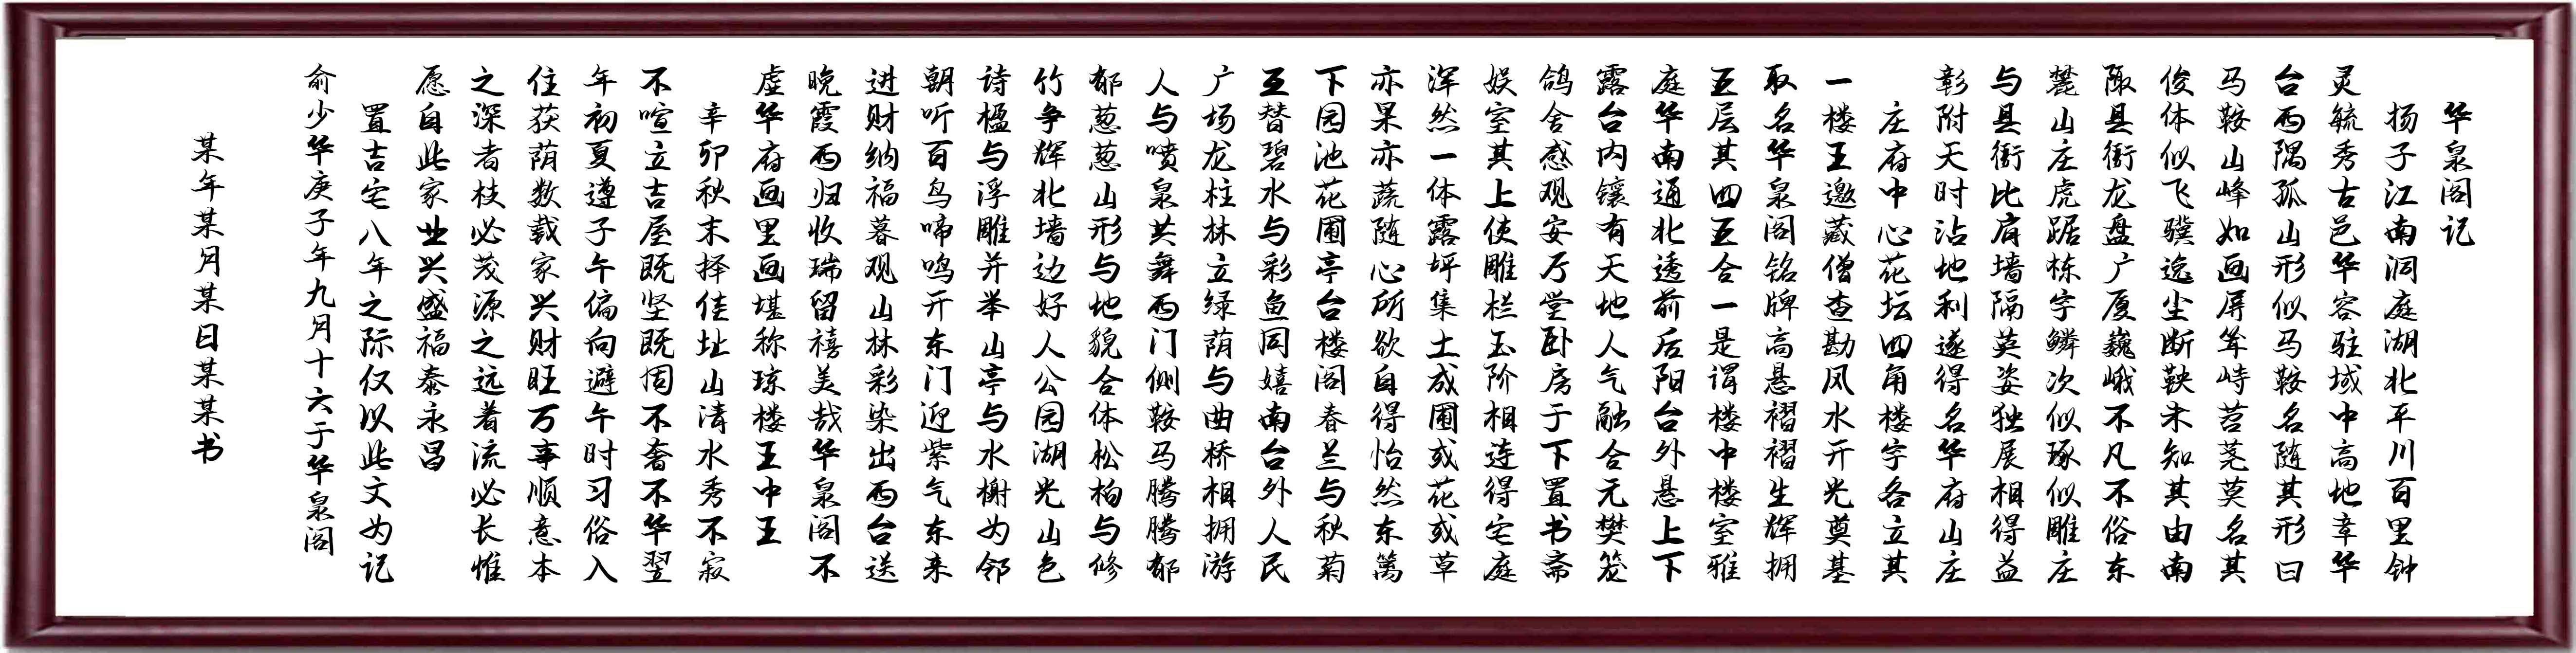 华泉阁记
扬子江南洞庭湖北平川百里钟
灵毓秀古邑华容驻域中高地章华
台西隅孤山形似马鞍名随其形曰
马鞍山峰如画屏耸峙苕茺莫名其
俊体似飞骥逸尘断鞅未知其由南
陬县衙龙盘广厦巍峨不凡不俗东
麓山庄虎踞栋宇鳞次似琢似雕庄
与县衙比肩墙隔英姿独展相得益
彰附天时沾地利遂得名华府山庄
庄府中心花坛四角楼宇各立其
一楼王邀藏僧查勘风水开光奠基
取名华泉阁铭牌高悬褶褶生辉拥
五层其四五合一是谓楼中楼室雅
庭华南通北透前后阳台外悬上下
露台内镶有天地人气融合无樊笼
鸽舍感观安厅堂卧房于下置书斋
娱室其上使雕栏玉阶相连得宅庭
浑然一体露坪集土成圃或花或草
亦果亦蔬随心所欲自得怡然东篱
下园池花圃亭台楼阁春兰与秋菊
互替碧水与彩鱼同嬉南台外人民
广场龙柱林立绿荫与曲桥相拥游
人与喷泉共舞西门侧鞍马腾腾郁
郁葱葱山形与地貌合体松柏与修
竹争辉北墙边好人公园湖光山色
诗楹与浮雕并举山亭与水榭为邻
朝听百鸟啼鸣开东门迎紫气东来
进财纳福暮观山林彩染出西台送
晚霞西归收瑞留禧美哉华泉阁不
虚华府画里画堪称琼楼王中王
辛卯秋末择佳址山清水秀不寂
不喧立吉屋既坚既固不奢不华翌
年初夏遵子午偏向避午时习俗入
住获荫数载家兴财旺万事顺意本
之深者枝必茂源之远着流必长惟
愿自此家业兴盛福泰永昌
置吉宅八年之际仅以此文为记
俞少华庚子年九月十六于华泉阁
某年某月某日某某书